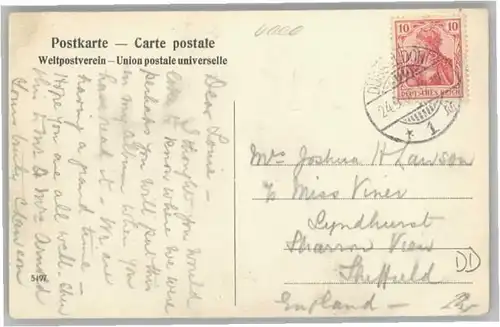 Postkarte — Carte postale
Weltpostverein — Union postale universelle
6000
10 10
DEUTSCHES REICH
24
* 1
Dear Louie —
I thought you would
like to know where we were
perhaps you will put this
in my album when you
have read it — We are
having a grand time —
Hope you are all well —
this to Mr & Mrs Arnold
Yours truly
Lawson
5497
Mrs Joshua H Lawson
c/o Miss Viner
Lyndhurst
Sharrow View
Sheffield
England —
DD